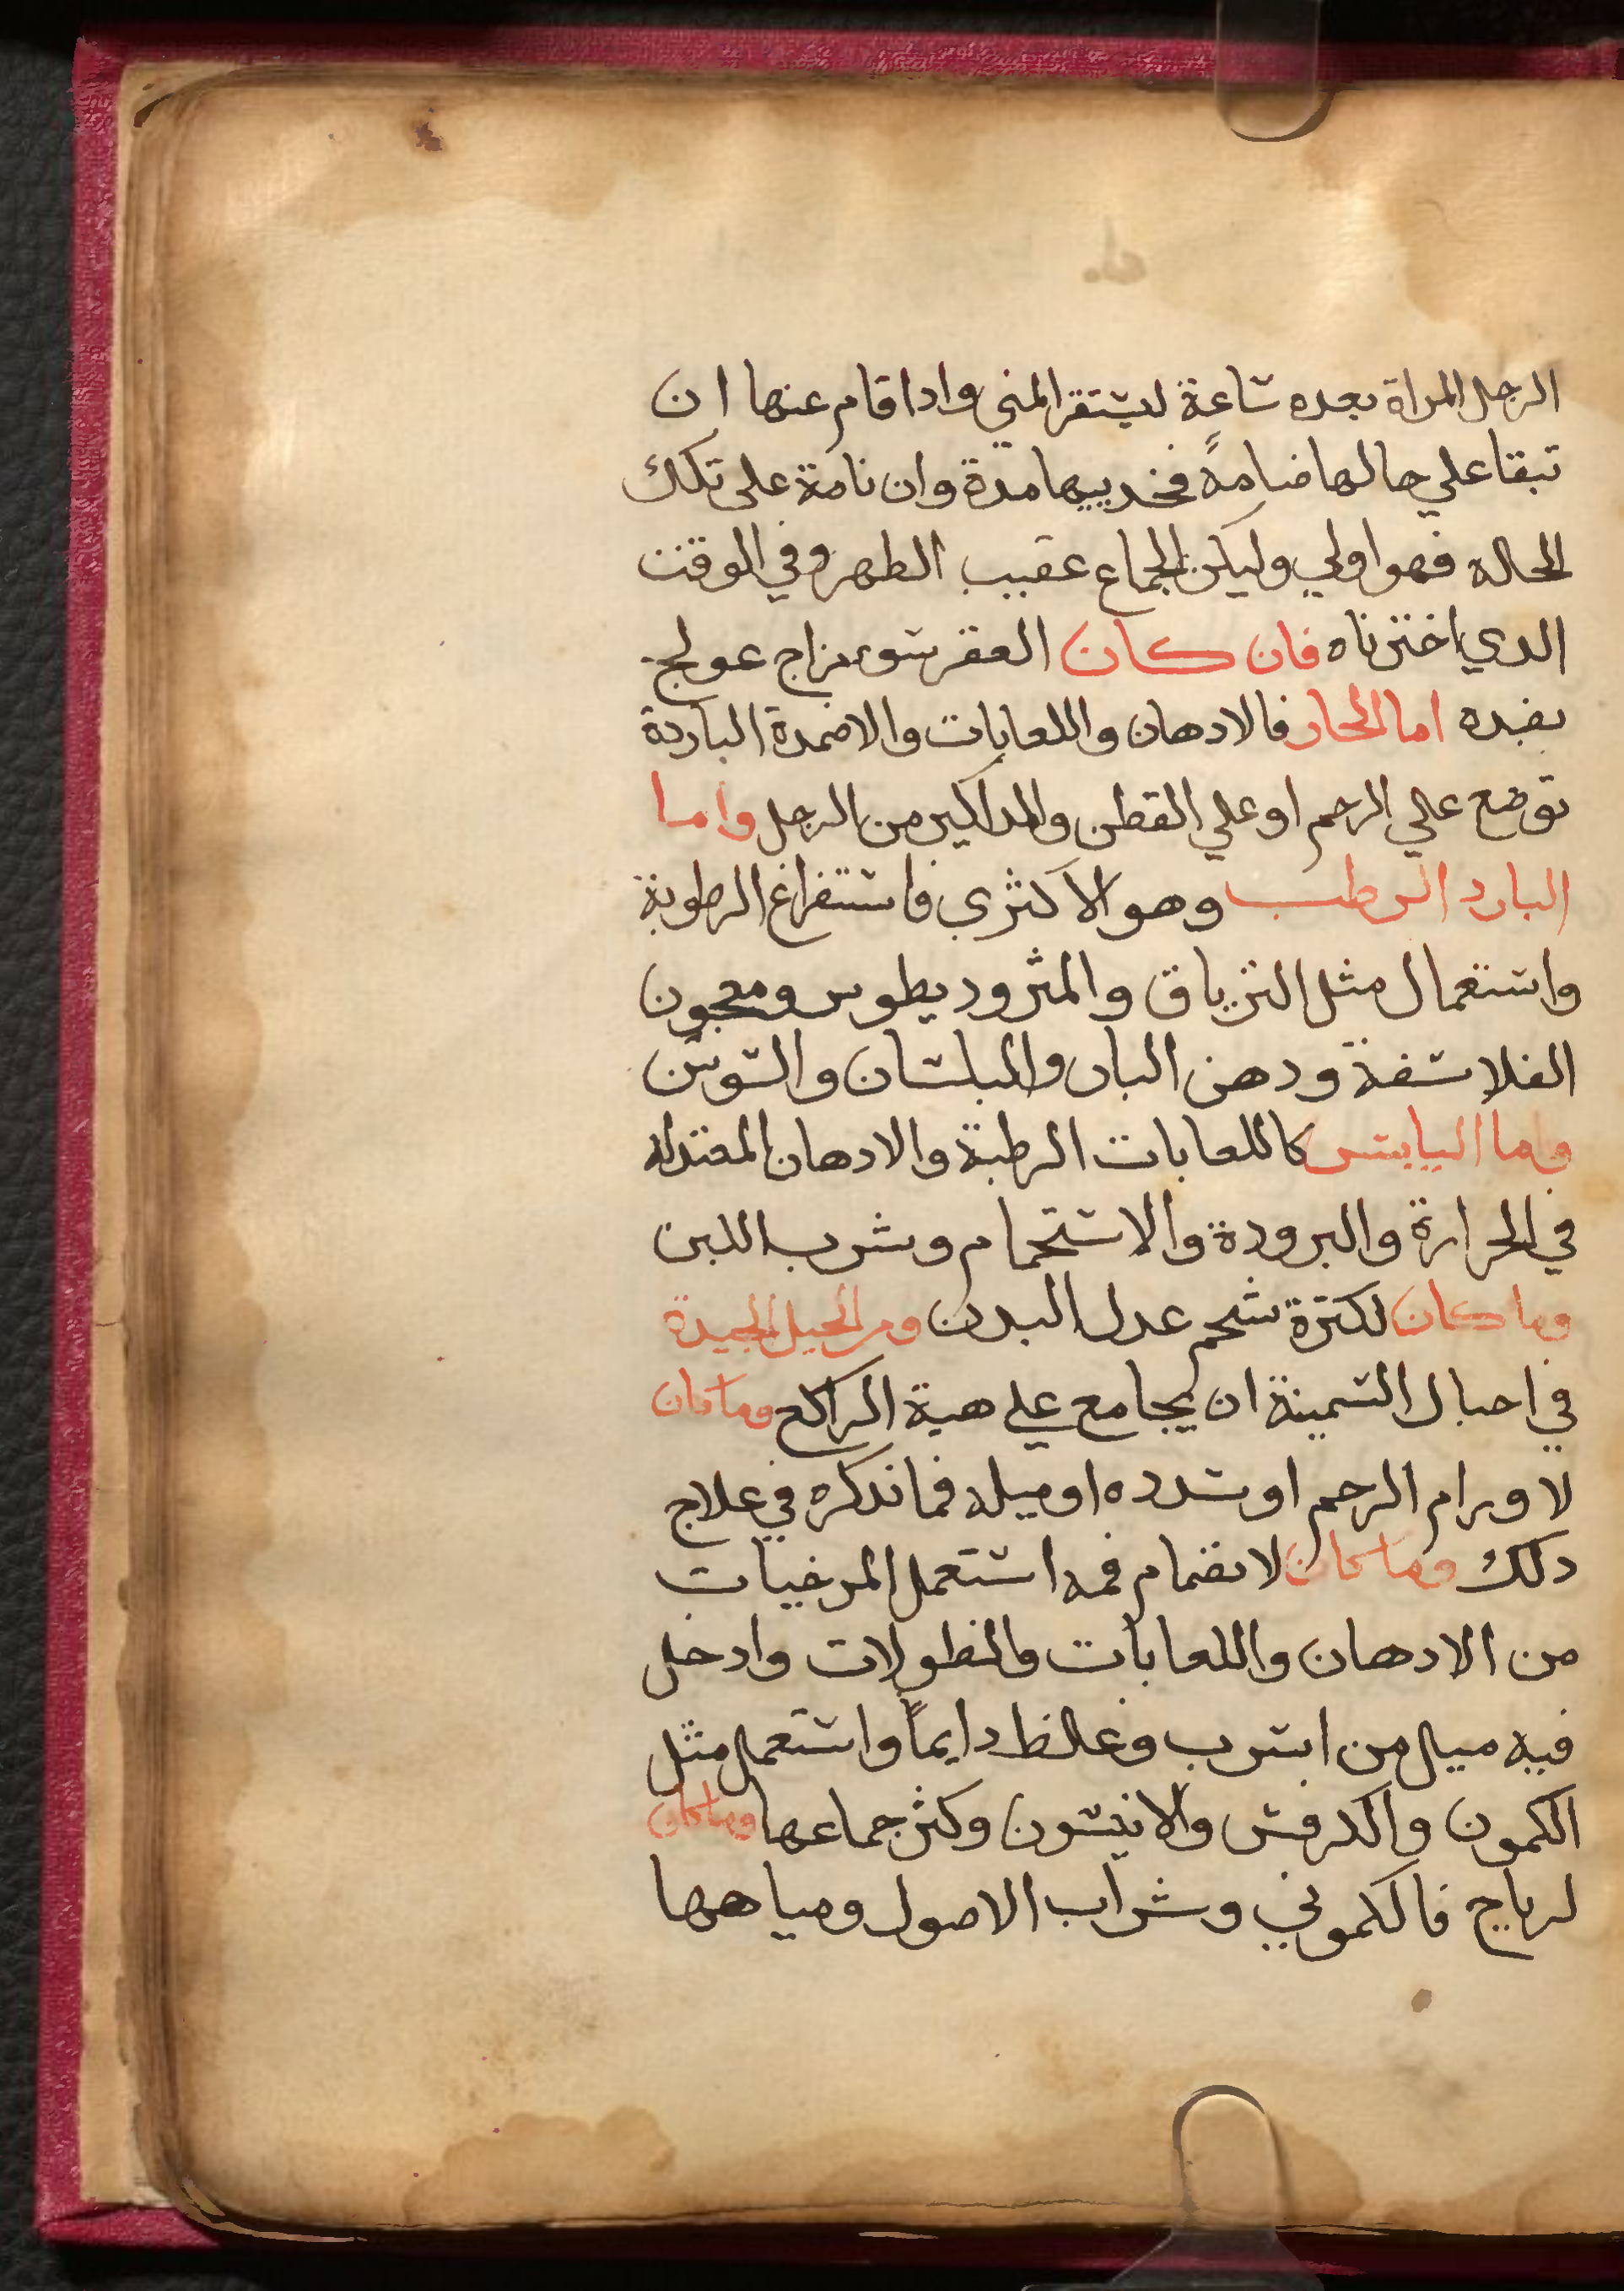 الرجل المراة بعده ساعة ليستقر المني واداقام عنها ان
تبقا علي حالها ضامةً فخديها مدة وان نامة على تلك
الحاله فهو اولي وليكن الجماع عقيب الطهر وفي الوقت
الدي اخترناه فان كان العقر سوء مزاج عولج
بضده اما الحار فالادهان واللعابات والاضمدة الباردة
توضع علي الرحم او علي القطن والمداكير من الرجل واما
البارد الرطب وهو الاكثري فاستفراغ الرطوبة
واستعمال مثل الترياق والمثروديطوس ومعجون
الفلاسفة ودهن البان والبلسان والسوسن
واما اليابس كاللعابات الرطبة والادهان المعتدله
في الحرارة والبرودة والاستحمام وشرب اللبن
وما كان لكثرة شحم عدل البدن ومن الحيل الجيدة
في احبال السمينة ان يجامع علي هية الراكع وما كان
لاورام الرحم او سدده او ميله فما نذكره في علاج
دلك وما كان لانضمام فمه استعمل المرخيات
من الادهان واللعابات والنطولات وادخل
فيه ميل من اسرب وغلظ دايماً واستعمل مثل
الكمون والكرفس والانيسون وكثر جماعها وما كان
لرياح فالكموني وشراب الاصول ومياهها